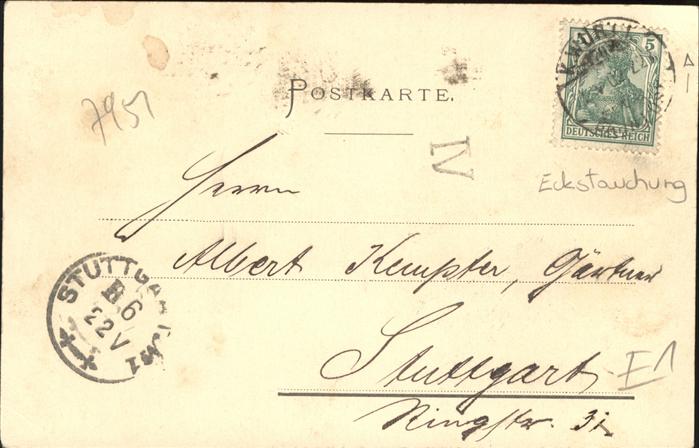 POSTKARTE.
7951
5
DEUTSCHES REICH
IV
Eckstauchung
Herrn
Albert Kempter, Gärtner
STUTTGART. No1
6
22 V
Stuttgart
E1
Ringstr. 31